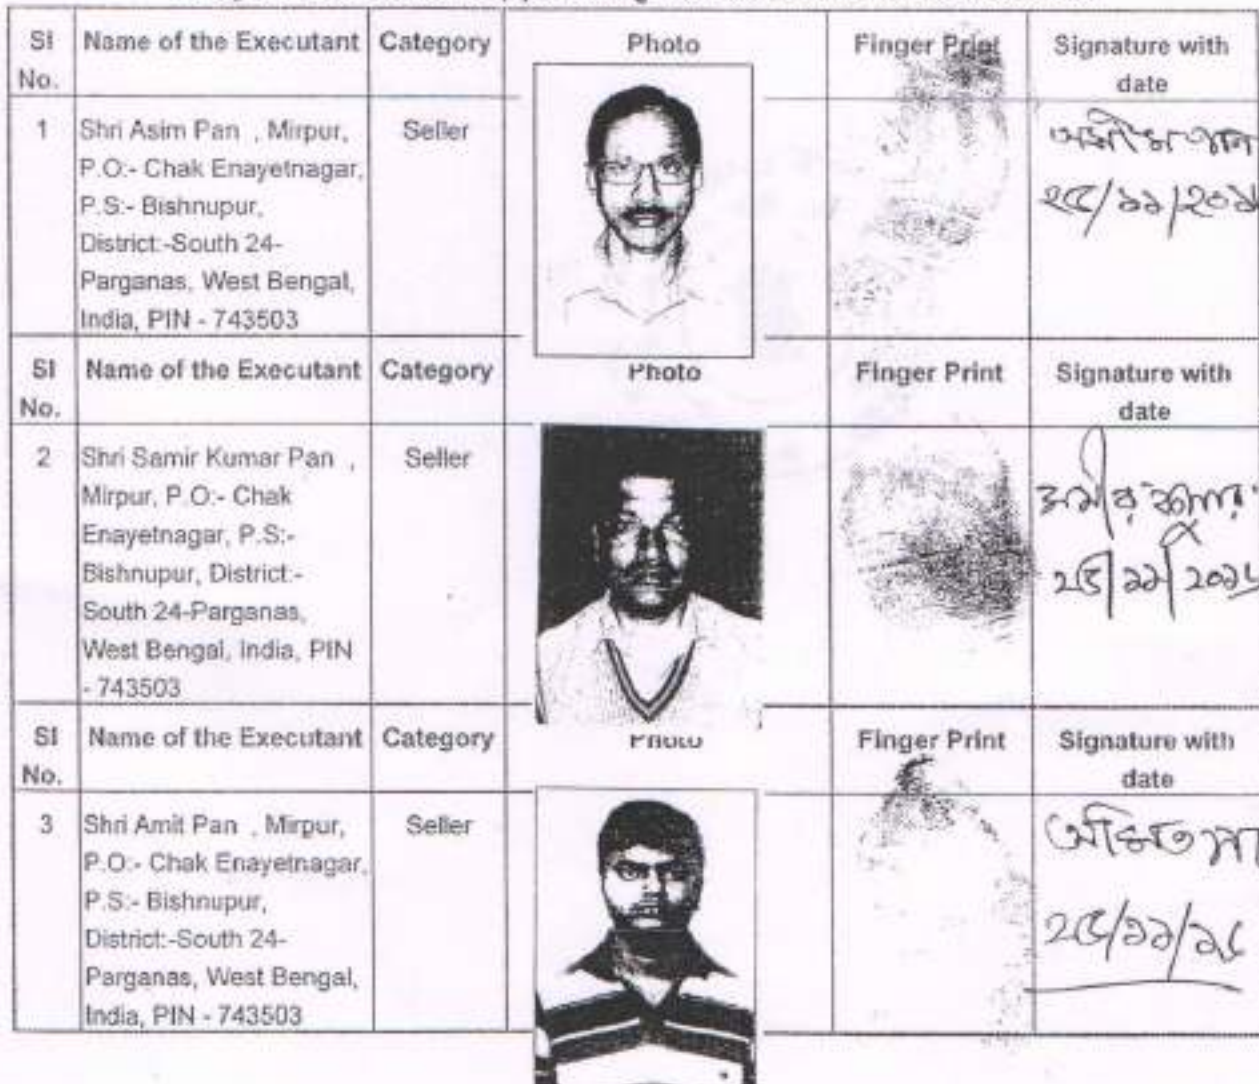 SI No. Name of the Executant Category Photo Finger Print Signature with date
1 Shri Asim Pan , Mirpur, Seller
P.O:- Chak Enayetnagar,
P.S:- Bishnupur,
District:-South 24-
Parganas, West Bengal,
India, PIN - 743503
অসীম পান
২৫/১১/২০১৬
SI No. Name of the Executant Category Photo Finger Print Signature with date
2 Shri Samir Kumar Pan , Seller
Mirpur, P.O:- Chak
Enayetnagar, P.S:-
Bishnupur, District:-
South 24-Parganas,
West Bengal, India, PIN
- 743503
সমীর কুমার
২৫/১১/২০১৬
SI No. Name of the Executant Category Photo Finger Print Signature with date
3 Shri Amit Pan , Mirpur, Seller
P.O:- Chak Enayetnagar,
P.S:- Bishnupur,
District:-South 24-
Parganas, West Bengal,
India, PIN - 743503
অমিত
২৫/১১/১৬